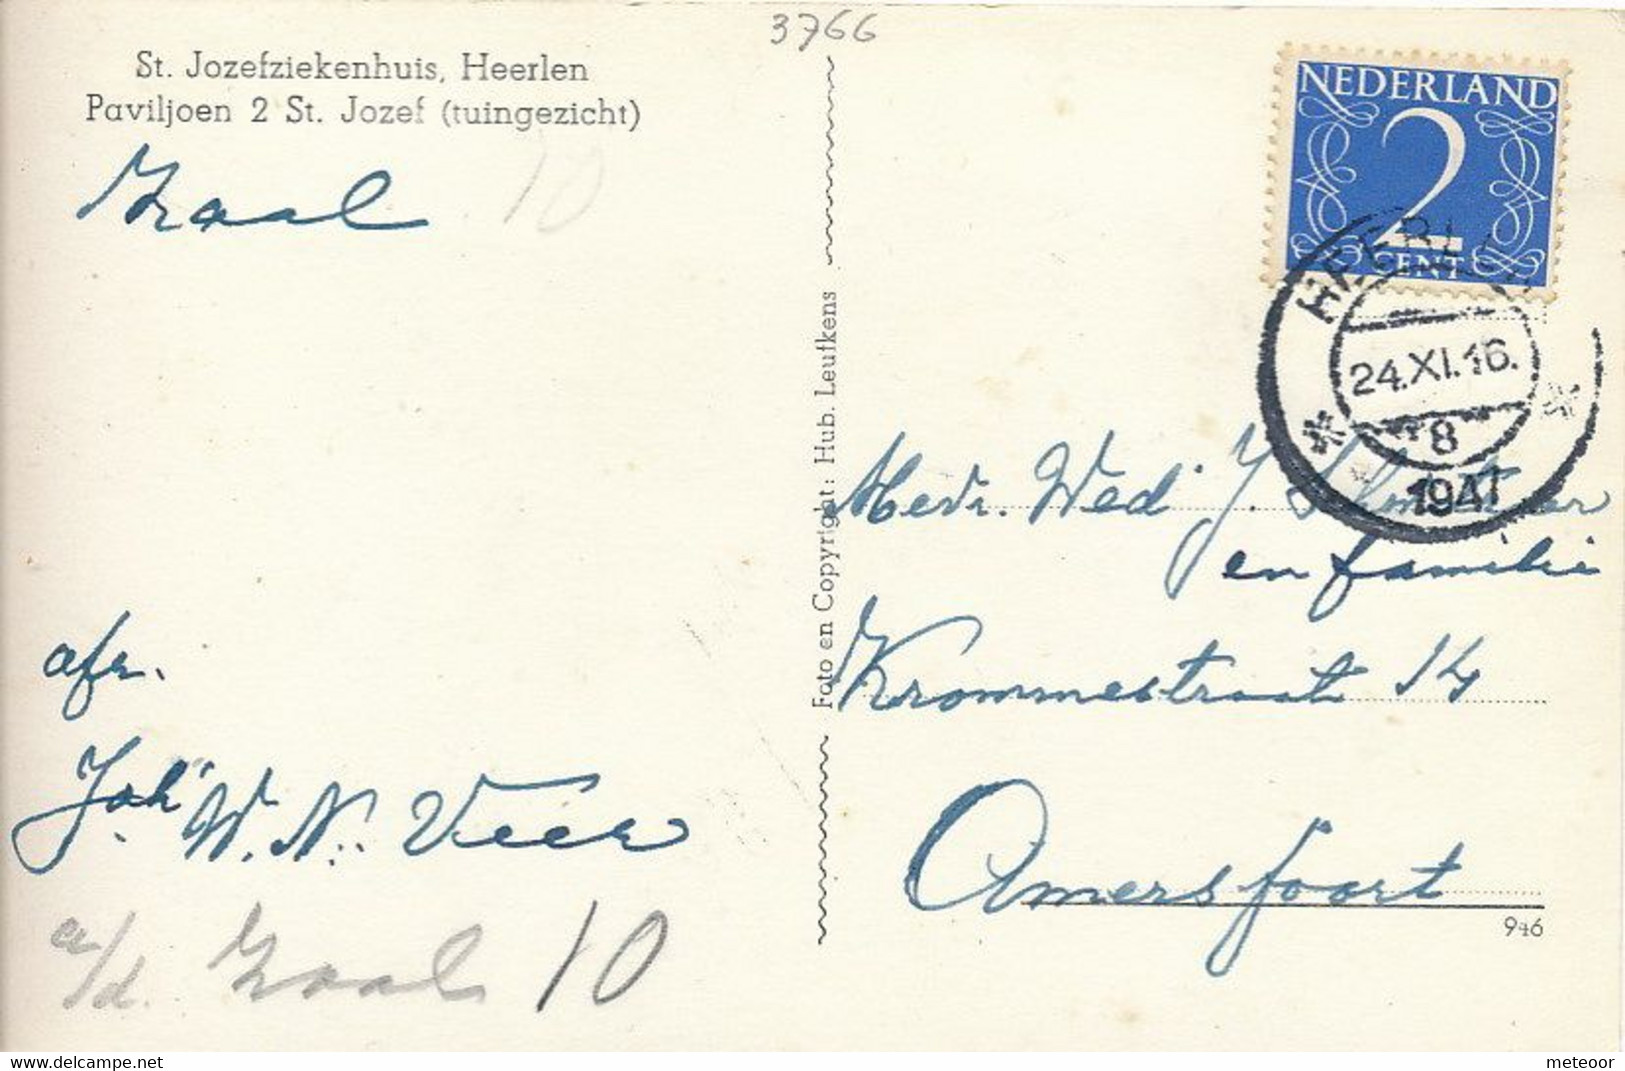 3766
St. Jozefziekenhuis, Heerlen
Paviljoen 2 St. Jozef (tuingezicht)
Zaal 10
NEDERLAND
2
CENT
HEERLEN
24.XI.16.
8
1947
Foto en Copyright: Hub. Leufkens
Mevr. Wed J.
en familie
Krommestraat 14
Amersfoort
946
afz.
Joh W. N. Veer
a/d. Zaal 10
meteoor
www.delcampe.net